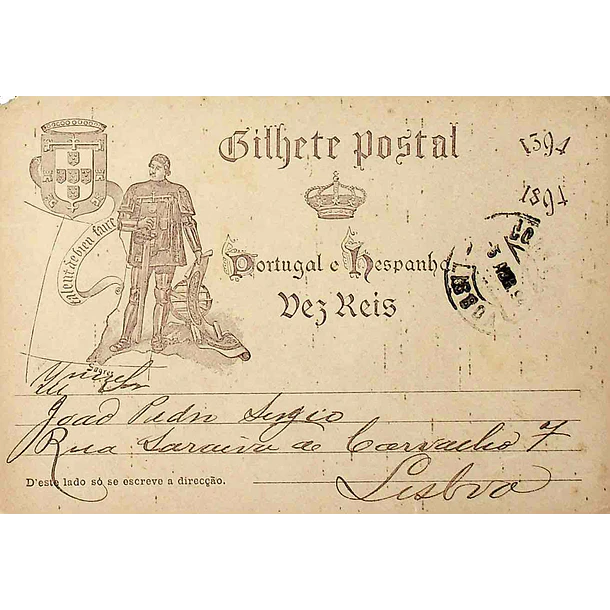 Bilhete postal
1394
1894
talent de bien faire
Portugal e Hespanha
Dez Reis
Sagres
João Pedro Sergio
Rua Saraiva de Carvalho 7
D'este lado só se escreve a direcção.
Lisboa